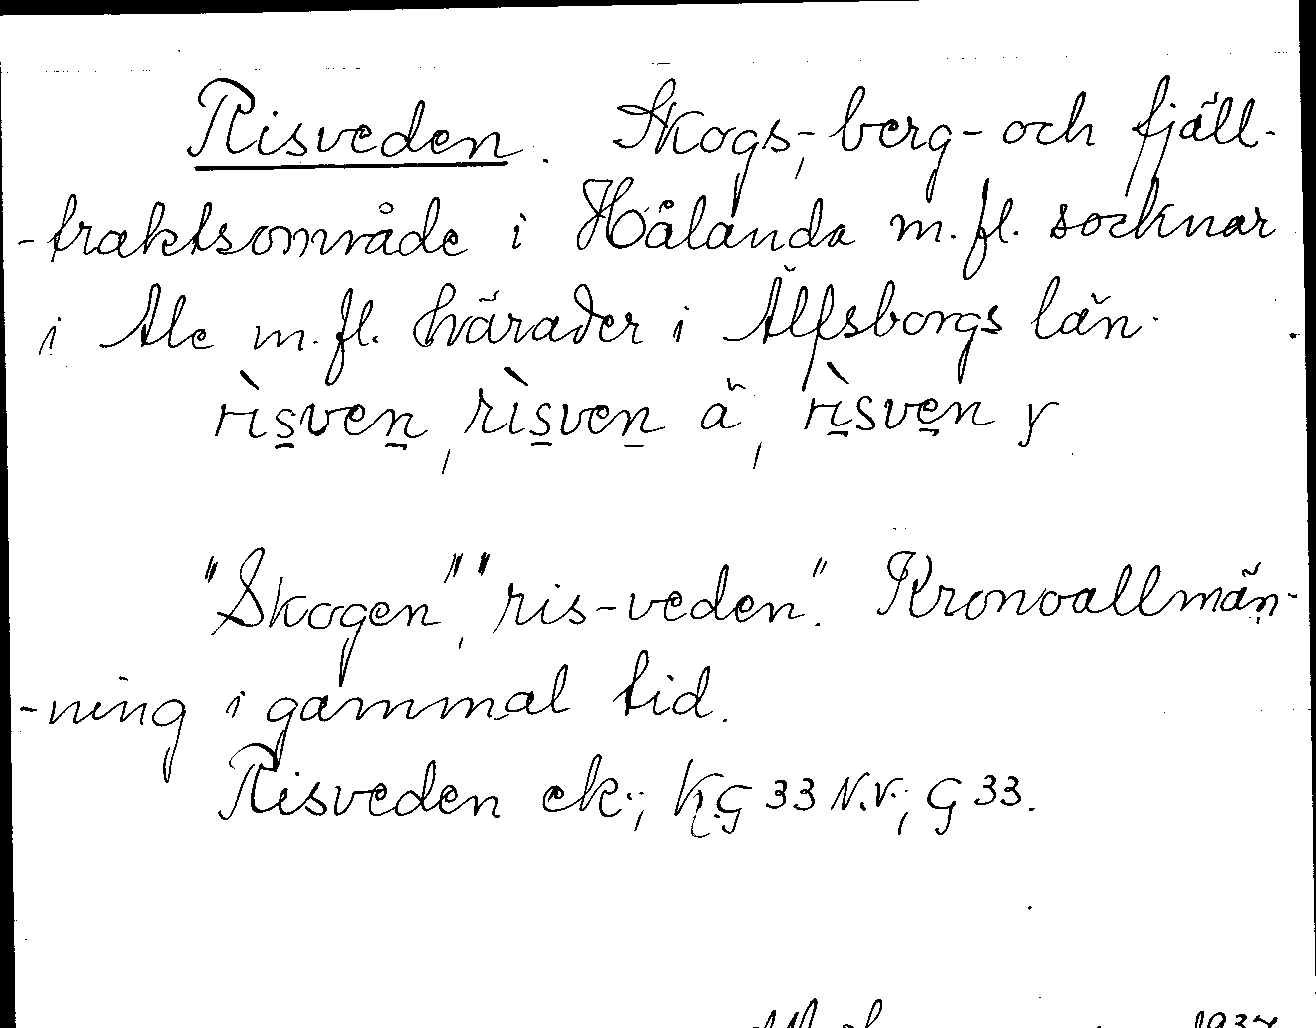 Risveden. Skogs-, berg- och fjäll-
-traktsområde i Hålanda m. fl. socknar
i Ale m. fl. härader i Älfsborgs län.
rìsven, rìsven ä, rìsven y
"Skogen", "ris-veden". Kronoallmän-
-ning i gammal tid.
Risveden ek.; K.G 33 N.V.; G 33.
1937